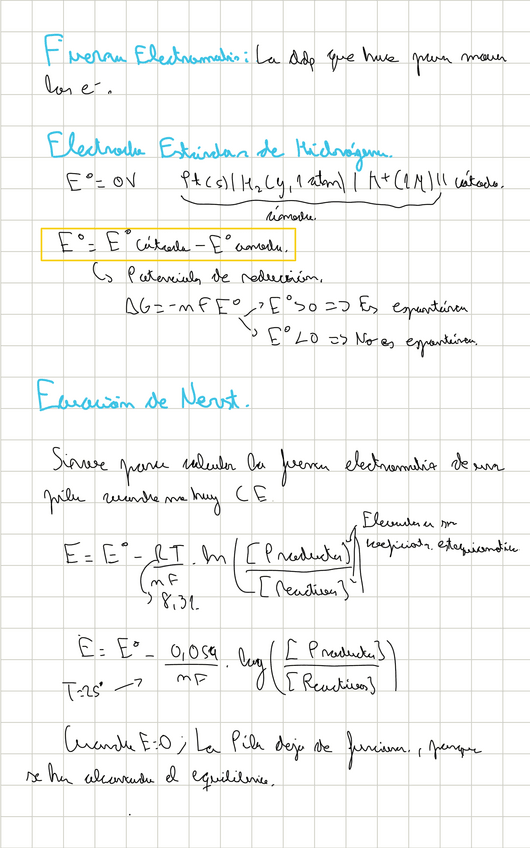 Fuerza Electromotriz: La ddp que hace para mover
los e-.
Electrodo Estándar de Hidrógeno.
E°= 0V Pt(s)|H₂(g, 1 atm) | H+(1M)|| cátodo.
ánodo.
E°= E° cátodo - E° ánodo.
↳ Potenciales de reducción.
ΔG=-nFE° → E°>0 => Es espontánea
↘ E°<0 => No es espontánea.
Ecuación de Nerst.
Sirve para calcular la fuerza electromotriz de una
pila cuando no hay CE.
Elevados a su
coeficiente estequiométrico
E = E° - RT/nF . ln ([Productos]/[Reactivos])
8,31.
E = E° - 0,059/nF . log ([Productos]/[Reactivos])
T=25° →
Cuando E=0; La Pila deja de funcionar, porque
se ha alcanzado el equilibrio.